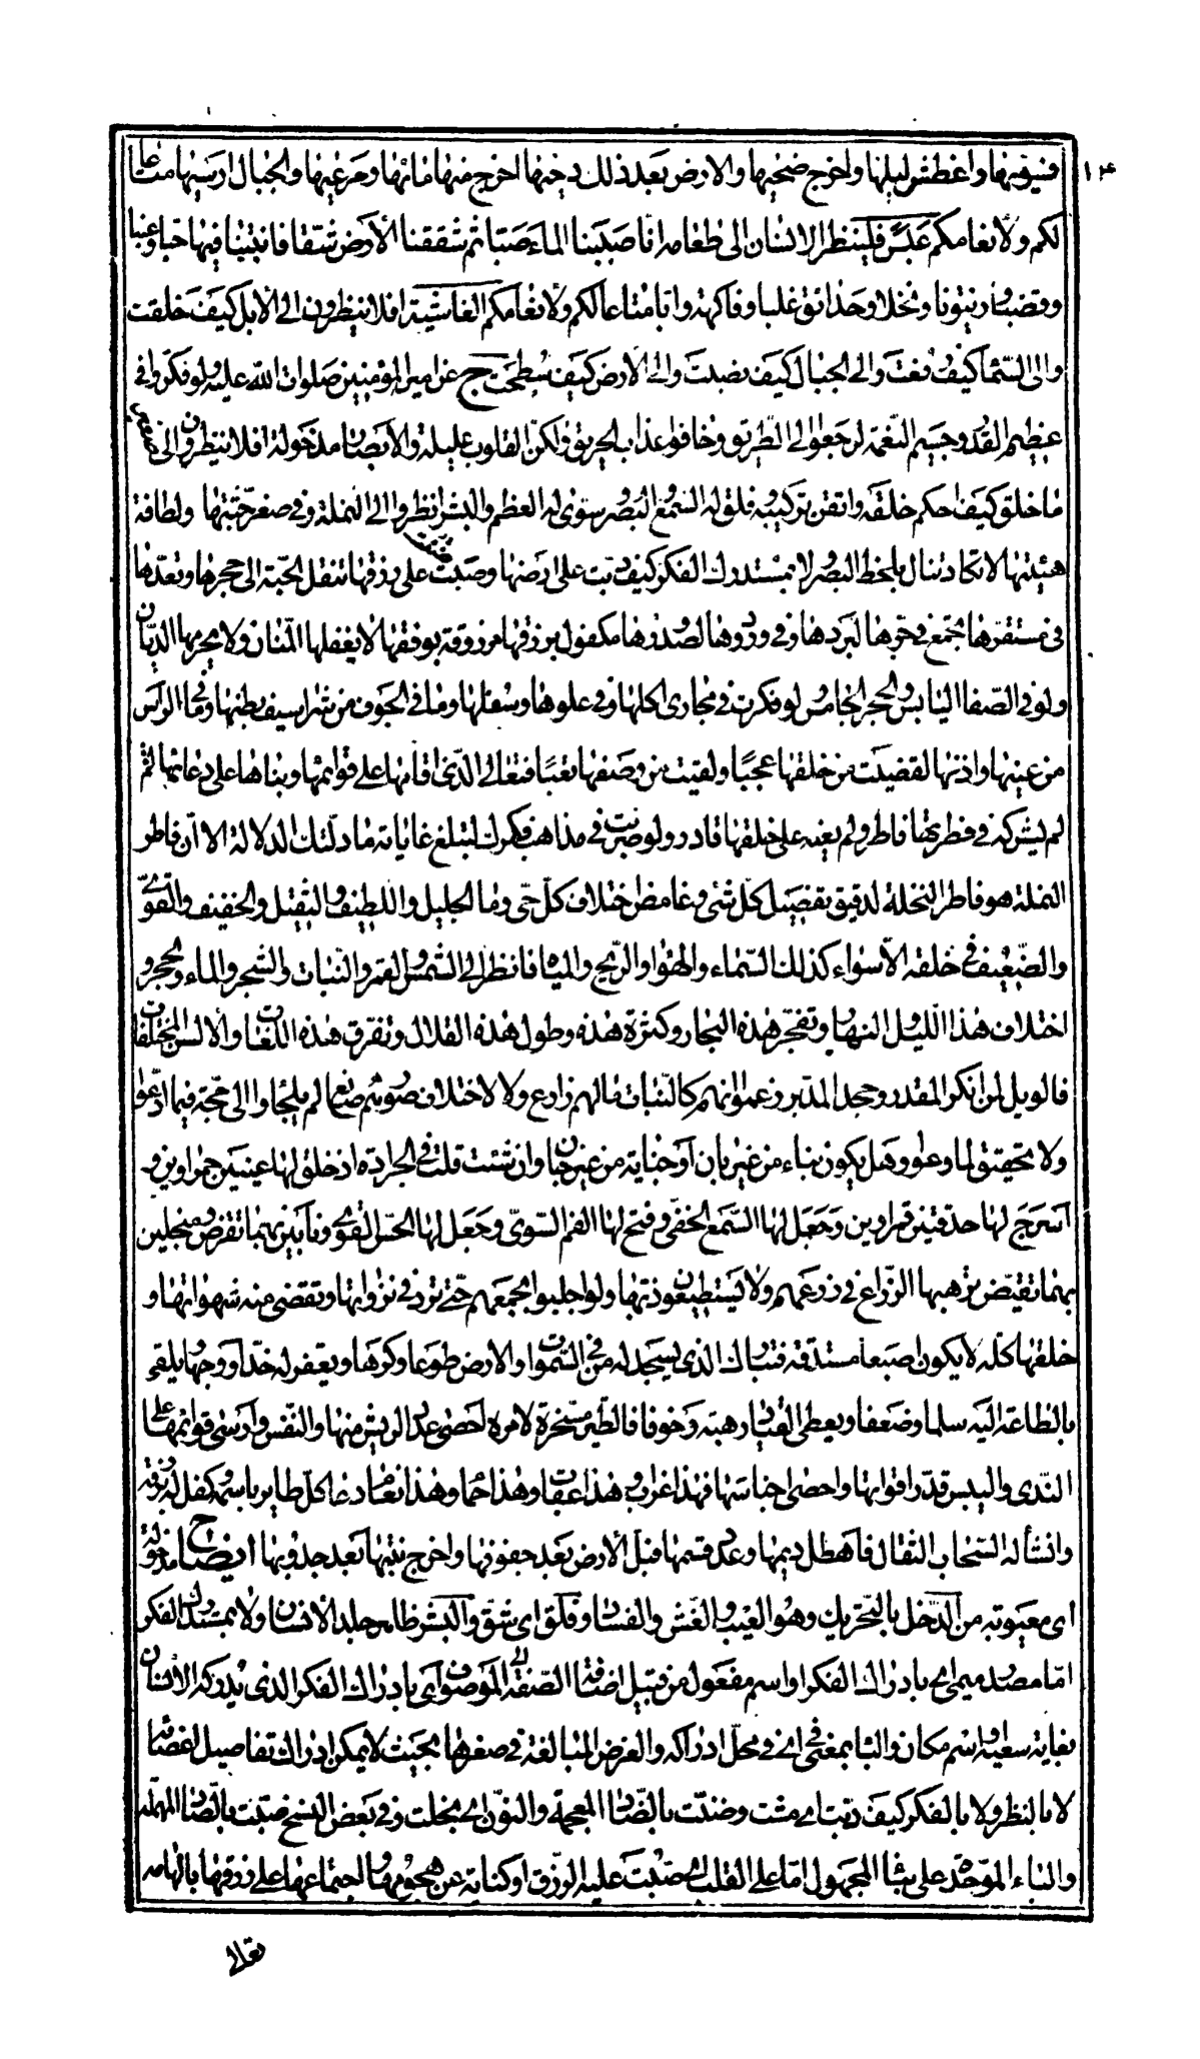 فسويها واغطش ليلها واخرج ضحيها والارض بعد ذلك دحيها اخرج منها مائها ومرعيها والجبال ارسيها متاعا
لكم ولانعامكم عبس فلينظر الانسان الى طعامه انا صببنا الماء صبا ثم شققنا الأرض شقا فانبتنا فيها حبا وعنبا
وقضبا وزيتونا ونخلا وحدائق غلبا وفاكهة وابا متاعا لكم ولانعامكم الغاشية افلا ينظرون الى الأبل كيف خلقت
والى السماء كيف رفعت والى الجبال كيف نصبت والى الأرض كيف سطحت ج عن امير المؤمنين صلوات الله عليه ولو فكروا في
عظيم القدرة وجسيم النعمة لرجعوا الى الطريق وخافوا عذاب الحريق ولكن القلوب عليلة والأبصار مدخولة افلا ينظرون الى صغير
ما خلق كيف احكم خلقه واتقن تركيبه وفلق له السمع والبصر وسوى له العظم والبشر انظروا الى النملة في صغر جثتها ولطافة
هيئتها لا تكاد تنال بلحظ البصر ولا بمستدرك الفكر كيف دبت على ارضها وضنت صبت على رزقها تنقل الحبة الى جحرها وتعدها
في مستقرها تجمع في حرها لبردها وفي ورودها لصدورها مكفول برزقها مرزوقة بوفقها لا يغفلها المنان ولا يحرمها الديان
ولو في الصفا اليابس والحجر الجامس لو فكرت في مجاري اكلها وفي علوها وسفلها وما في الجوف من شراسيف بطنها وما في الراس
من عينها واذنها لقضيت من خلقها عجبا ولقيت من وصفها تعبا فتعالى الذي اقامها على قوائمها وبناها على دعائمها
لم يشركه في فطرتها فاطر ولم يعنه على خلقها قادر ولو ضربت في مذاهب فكرك لتبلغ غاياته ما دلتك الدلالة الا ان فاطر
النملة هو فاطر النخلة لدقيق تفصيل كل شئ وغامض اختلاف كل حي وما الجليل واللطيف والثقيل والخفيف والقوى
والضعيف في خلقه الا سواء كذلك السماء والهواء والريح والمياه فانظر الى الشمس والقمر والنبات والشجر والماء والحجر و
اختلاف هذا الليل والنهار وتفجر هذه البحار وكثرة هذه وطول هذه القلال وتفرق هذه اللغات والألسن المختلفات
فالويل لمن انكر المقدر وجحد المدبر زعموا انهم كالنبات ما لهم زارع ولا لاختلاف صورهم صانع لم يلجأوا الى حجة فيما ادعوا
ولا تحقيق لما وعوا وهل يكون بناء من غير بان او جناية من غير جان وان شئت قلت في الجرادة اذ خلق لها عينين حمراوين و
اسرج لها حدقتين قمراوين وجعل لها السمع الخفى وفتح لها الفم السوى وجعل لها الحس القوى ونابين بهما تقرض ومنجلين
بهما تقبض يرهبها الزراع في زرعهم ولا يستطيعون ذبها ولو اجلبوا بجمعهم حتى ترد في نزواتها وتقضى منه شهواتها و
خلقها كله لا يكون اصبعا مستدقة فتبارك الذي يسجد له من في السموات والارض طوعا وكرها ويعفر له خدا ووجها ويلقى
بالطاعة اليه سلما وضعفا ويعطى القياد رهبة وخوفا فالطير مسخرة لامره احصى عدد الريش منها والنفس وارسى قوائمها على
الندى واليبس قدر اقواتها واحصى اجناسها فهذا غراب وهذا عقاب وهذا حمام وهذا نعام دعا كل طاير باسمه وكفل له برزقه
وانشأ السحاب الثقال فأهطل ديمها وعدد قسمها فبل الأرض بعد جفوفها واخرج نبتها بعد جدوبها ايضاح مدخولة
اى معيوبة من الدخل بالتحريك وهو العيب والغش والفساد وفلق اى شق والبشر ظاهر جلد الانسان ولا بمستدرك الفكر
اما مصدر ميمى اى بادراك الفكر او اسم مفعول من قبيل اضافة الصفة الى الموصوف اى بادراك الفكر الذي يدركه الأنسان
بغاية سعيه او اسم مكان والباء بمعنى في اى في محل ادراكه والغرض المبالغة في صغرها بحيث لا يمكن ادراك تفاصيل اعضائها
لا بالنظر ولا بالفكر كيف دبت اى مشت وضنت بالضاد المعجمة والنون اى بخلت وفي بعض النسخ صبت بالصاد المهملة
والباء الموحدة على بناء المجهول اما على القلب اى صبت عليها الرزق او كناية عن هجومها واجتماعها على رزقها بالهامه
تعالى